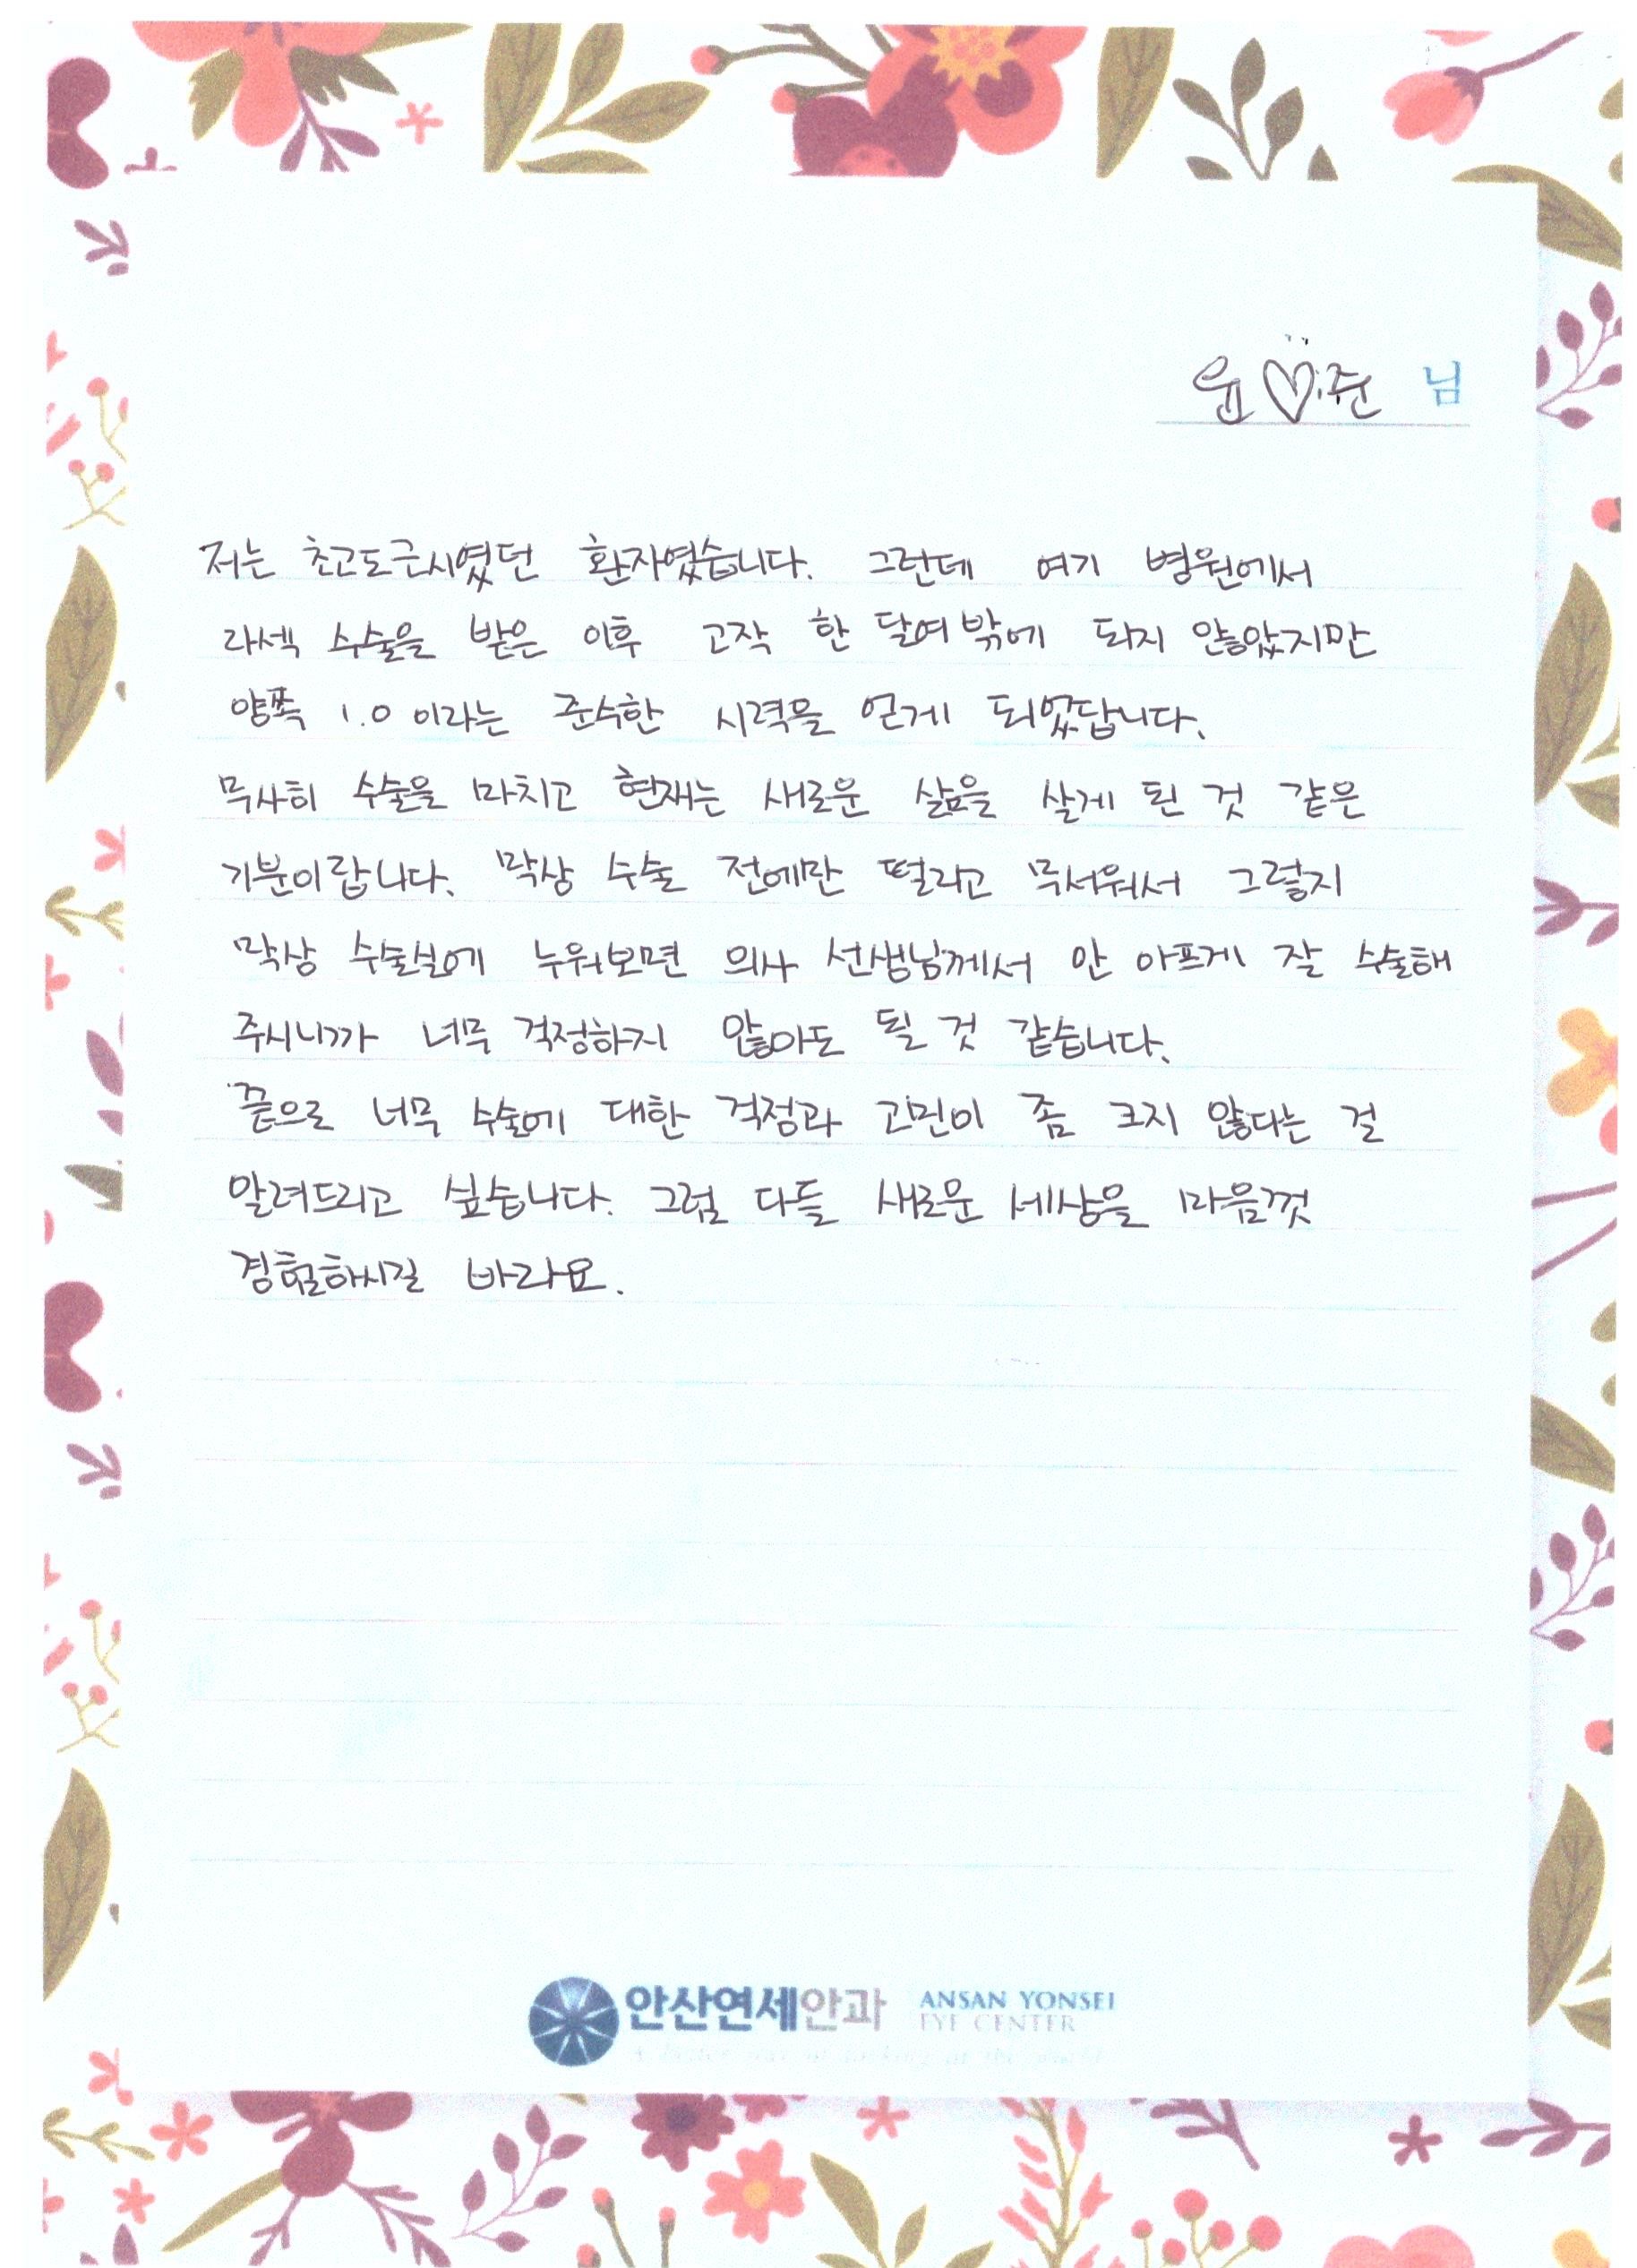 윤♡준 님
저는 초고도근시였던 환자였습니다. 그런데 여기 병원에서
라섹 수술을 받은 이후 고작 한 달여밖에 되지 않았지만
양쪽 1.0이라는 준수한 시력을 얻게 되었답니다.
무사히 수술을 마치고 현재는 새로운 삶을 살게 된 것 같은
기분이랍니다. 막상 수술 전에만 떨리고 무서워서 그렇지
막상 수술실에 누워보면 의사 선생님께서 안 아프게 잘 수술해
주시니까 너무 걱정하지 않아도 될 것 같습니다.
끝으로 너무 수술에 대한 걱정과 고민이 좀 크지 않다는 걸
알려드리고 싶습니다. 그럼 다들 새로운 세상을 마음껏
경험하시길 바라요.
안산연세안과 ANSAN YONSEI
EYE CENTER